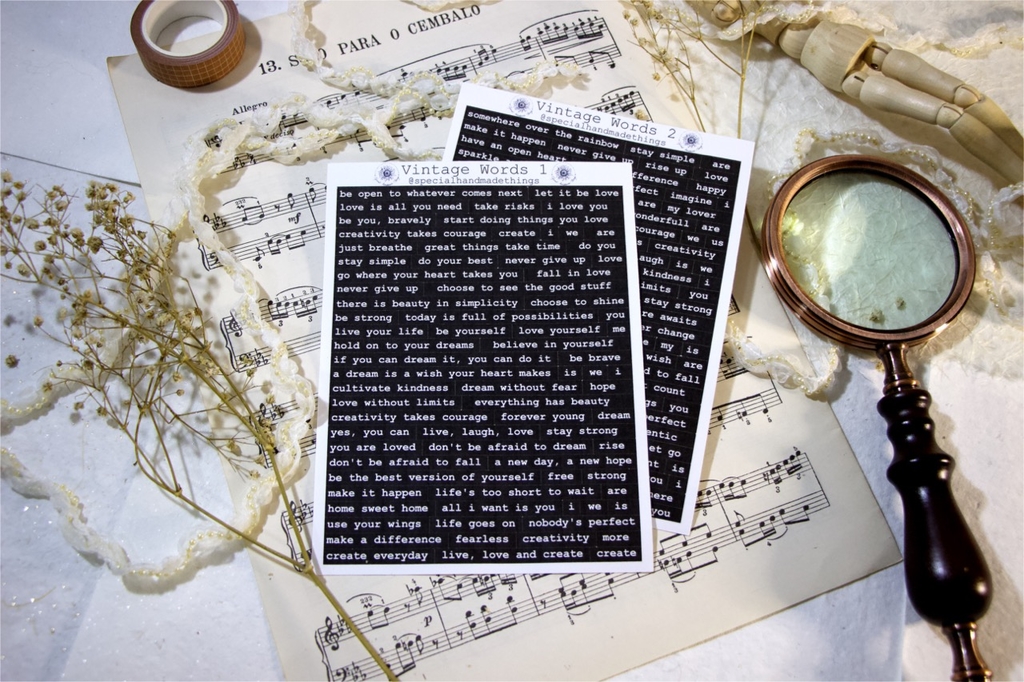 13.
PARA O CEMBALO
Allegro
mf
Vintage Words 2
@specialhandmadethings
somewhere over the rainbow stay simple are
make it happen never give up rise up love
have an open heart
fference happy
sparkle
imagine i
are my lover
onderfull are
courage we us
creativity
augh is we
kindness i
imits you
stay strong
re awaits
r change
my is
wish are
d to fall
count
gs you
perfect
entic
et go
nt is
ou i
here
you
Vintage Words 1
@specialhandmadethings
be open to whatever comes next let it be love
love is all you need take risks i love you
be you, bravely start doing things you love
creativity takes courage create i we are
just breathe great things take time do you
stay simple do your best never give up love
go where your heart takes you fall in love
never give up choose to see the good stuff
there is beauty in simplicity choose to shine
be strong today is full of possibilities you
live your life be yourself love yourself me
hold on to your dreams believe in yourself
if you can dream it, you can do it be brave
a dream is a wish your heart makes is we i
cultivate kindness dream without fear hope
love without limits everything has beauty
creativity takes courage forever young dream
yes, you can live, laugh, love stay strong
you are loved don't be afraid to dream rise
don't be afraid to fall a new day, a new hope
be the best version of yourself free strong
make it happen life's too short to wait are
home sweet home all i want is you i we is
use your wings life goes on nobody's perfect
make a difference fearless creativity more
create everyday live, love and create create
p